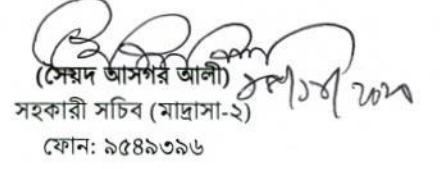 (সৈয়দ আসগর আলী)
সহকারী সচিব (মাদ্রাসা-২)
ফোন: ৯৫৪৯৩৯৬